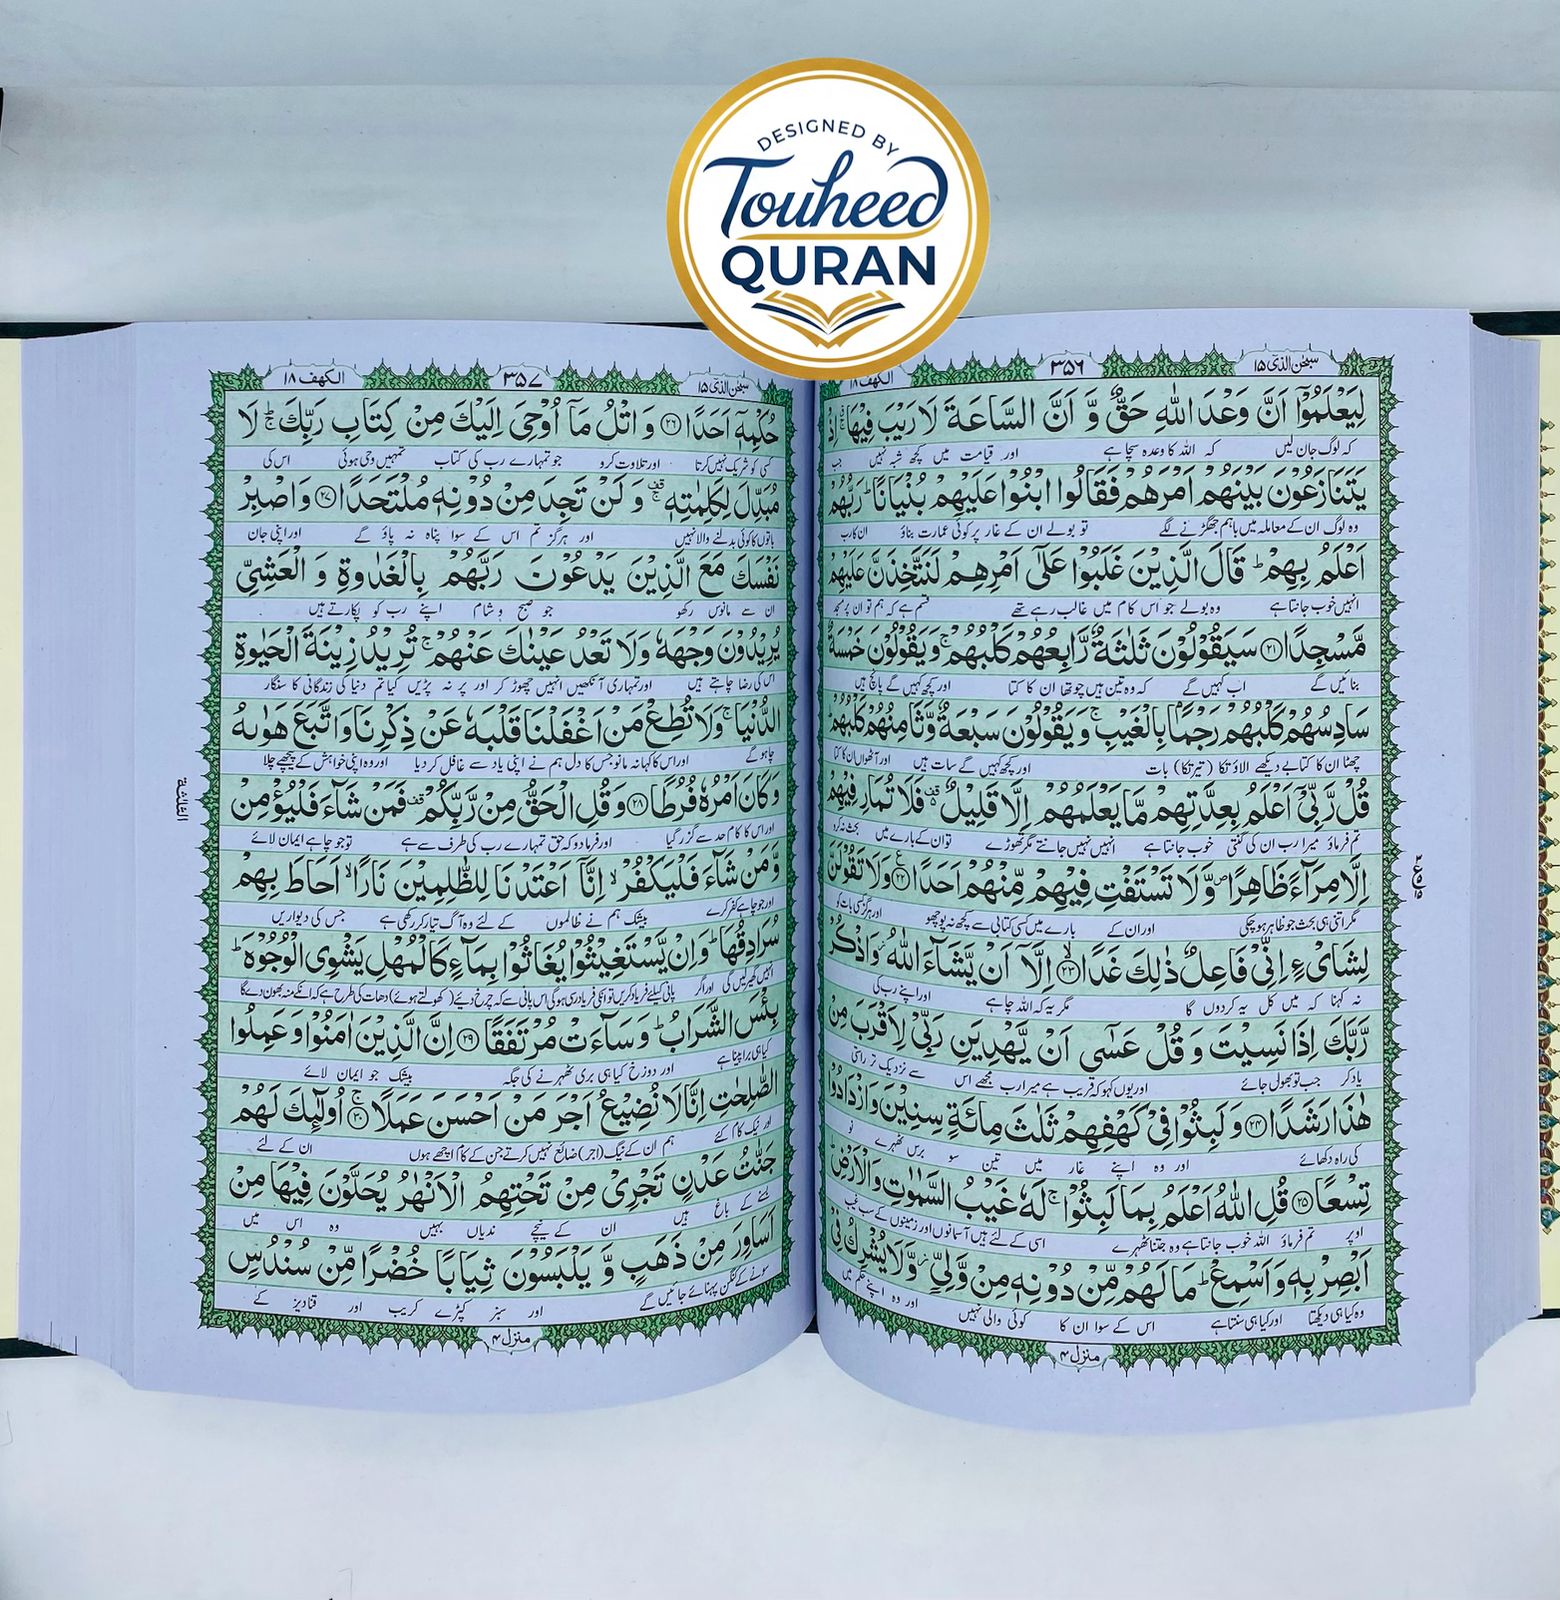 DESIGNED BY
Touheed
QURAN
سبحٰن الذی ۱۵
۳۵۶
الکهف ۱۸
لِيَعْلَمُوْٓا اَنَّ وَعْدَ اللّٰهِ حَقٌّ وَّ اَنَّ السَّاعَةَ لَا رَيْبَ فِيْهَا ۚ اِذْ
کہ لوگ جان لیں کہ اللہ کا وعدہ سچا ہے اور قیامت میں کچھ شبہ نہیں جب
يَتَنَازَعُوْنَ بَيْنَهُمْ اَمْرَهُمْ فَقَالُوا ابْنُوْا عَلَيْهِمْ بُنْيَانًا ؕ رَبُّهُمْ
وہ لوگ ان کے معاملہ میں باہم جھگڑنے لگے تو بولے ان کے غار پر کوئی عمارت بناؤ ان کا رب
اَعْلَمُ بِهِمْ ؕ قَالَ الَّذِيْنَ غَلَبُوْا عَلٰٓى اَمْرِهِمْ لَنَتَّخِذَنَّ عَلَيْهِمْ
انہیں خوب جانتا ہے وہ بولے جو اس کام میں غالب رہے تھے قسم ہے کہ ہم تو ان پر مسجد
مَّسْجِدًا ۝۲۱ سَيَقُوْلُوْنَ ثَلٰثَةٌ رَّابِعُهُمْ كَلْبُهُمْ ۚ وَيَقُوْلُوْنَ خَمْسَةٌ
بنائیں گے اب کہیں گے کہ وہ تین ہیں چوتھا ان کا کتا اور کچھ کہیں گے پانچ ہیں
سَادِسُهُمْ كَلْبُهُمْ رَجْمًۢا بِالْغَيْبِ ۚ وَيَقُوْلُوْنَ سَبْعَةٌ وَّثَامِنُهُمْ كَلْبُهُمْ ؕ
چھٹا ان کا کتا بے دیکھے الاؤ تکا (تیر تکا) بات اور کچھ کہیں گے سات ہیں اور آٹھواں ان کا کتا
قُلْ رَّبِّيْٓ اَعْلَمُ بِعِدَّتِهِمْ مَّا يَعْلَمُهُمْ اِلَّا قَلِيْلٌ ۫ فَلَا تُمَارِ فِيْهِمْ
تم فرماؤ میرا رب ان کی گنتی خوب جانتا ہے انہیں نہیں جانتے مگر تھوڑے تو ان کے بارے میں بحث نہ کرو
اِلَّا مِرَآءً ظَاهِرًا ۪ وَّلَا تَسْتَفْتِ فِيْهِمْ مِّنْهُمْ اَحَدًا ۝۲۲ وَلَا تَقُوْلَنَّ
مگر اتنی ہی بحث جو ظاہر ہو چکی اور ان کے بارے میں کسی کتابی سے کچھ نہ پوچھو اور ہرگز کسی بات کو
لِشَايْءٍ اِنِّيْ فَاعِلٌ ذٰلِكَ غَدًا ۝۲۳ اِلَّآ اَنْ يَّشَآءَ اللّٰهُ ؗ وَاذْكُرْ
نہ کہنا کہ میں کل یہ کردوں گا مگر یہ کہ اللہ چاہے اور اپنے رب کی
رَّبَّكَ اِذَا نَسِيْتَ وَقُلْ عَسٰٓى اَنْ يَّهْدِيَنِ رَبِّيْ لِاَقْرَبَ مِنْ
یاد کر جب تو بھول جائے اور یوں کہو کہ قریب ہے میرا رب مجھے اس سے نزدیک تر راستی
هٰذَا رَشَدًا ۝۲۴ وَلَبِثُوْا فِيْ كَهْفِهِمْ ثَلٰثَ مِائَةٍ سِنِيْنَ وَازْدَادُوْا
کی راہ دکھائے اور وہ اپنے غار میں تین سو برس ٹھہرے نو
تِسْعًا ۝۲۵ قُلِ اللّٰهُ اَعْلَمُ بِمَا لَبِثُوْا ۚ لَهٗ غَيْبُ السَّمٰوٰتِ وَالْاَرْضِ ؕ
اوپر تم فرماؤ اللہ خوب جانتا ہے وہ جتنا ٹھہرے اسی کے لئے ہیں آسمانوں اور زمینوں کے سب غیب
اَبْصِرْ بِهٖ وَاَسْمِعْ ؕ مَا لَهُمْ مِّنْ دُوْنِهٖ مِنْ وَّلِيٍّ ؗ وَّلَا يُشْرِكُ فِيْ
وہ کیا ہی دیکھتا اور کیا ہی سنتا ہے اس کے سوا ان کا کوئی والی نہیں اور وہ اپنے حکم میں
منزل ۴
سبحٰن الذی ۱۵
۳۵۷
الکهف ۱۸
حُكْمِهٖٓ اَحَدًا ۝۲۶ وَ اتْلُ مَآ اُوْحِيَ اِلَيْكَ مِنْ كِتَابِ رَبِّكَ ۚ لَا
کسی کو شریک نہیں کرتا اور تلاوت کرو جو تمہارے رب کی کتاب تمہیں وحی ہوئی اس کی
مُبَدِّلَ لِكَلِمٰتِهٖ ۚ وَلَنْ تَجِدَ مِنْ دُوْنِهٖ مُلْتَحَدًا ۝۲۷ وَاصْبِرْ
باتوں کا کوئی بدلنے والا نہیں اور ہرگز تم اس کے سوا پناہ نہ پاؤ گے اور اپنی جان
نَفْسَكَ مَعَ الَّذِيْنَ يَدْعُوْنَ رَبَّهُمْ بِالْغَدٰوةِ وَ الْعَشِيِّ
ان سے مانوس رکھو جو صبح و شام اپنے رب کو پکارتے ہیں
يُرِيْدُوْنَ وَجْهَهٗ وَلَا تَعْدُ عَيْنٰكَ عَنْهُمْ ۚ تُرِيْدُ زِيْنَةَ الْحَيٰوةِ
اس کی رضا چاہتے ہیں اور تمہاری آنکھیں انہیں چھوڑ کر اور پر نہ پڑیں کیا تم دنیا کی زندگانی کا سنگار
الدُّنْيَا ۚ وَلَا تُطِعْ مَنْ اَغْفَلْنَا قَلْبَهٗ عَنْ ذِكْرِنَا وَاتَّبَعَ هَوٰىهُ
چاہو گے اور اس کا کہا نہ مانو جس کا دل ہم نے اپنی یاد سے غافل کر دیا اور وہ اپنی خواہش کے پیچھے چلا
وَكَانَ اَمْرُهٗ فُرُطًا ۝۲۸ وَقُلِ الْحَقُّ مِنْ رَّبِّكُمْ ۫ فَمَنْ شَآءَ فَلْيُؤْمِنْ
اور اس کا کام حد سے گزر گیا اور فرما دو کہ حق تمہارے رب کی طرف سے ہے تو جو چاہے ایمان لائے
وَّمَنْ شَآءَ فَلْيَكْفُرْ ۙ اِنَّآ اَعْتَدْنَا لِلظّٰلِمِيْنَ نَارًا ۙ اَحَاطَ بِهِمْ
اور جو چاہے کفر کرے بیشک ہم نے ظالموں کے لئے وہ آگ تیار کر رکھی ہے جس کی دیواریں
سُرَادِقُهَا ؕ وَاِنْ يَّسْتَغِيْثُوْا يُغَاثُوْا بِمَآءٍ كَالْمُهْلِ يَشْوِي الْوُجُوْهَ ؕ
انہیں گھیر لیں گی اور اگر پانی کیلئے فریاد کریں تو انکی فریاد رسی ہو گی اس پانی سے کہ چرخ دیے (کھولتے ہوئے) دھات کی طرح ہے کہ انکے منہ بھون دے گا
بِئْسَ الشَّرَابُ ؕ وَسَآءَتْ مُرْتَفَقًا ۝۲۹ اِنَّ الَّذِيْنَ اٰمَنُوْا وَعَمِلُوا
کیا ہی برا پینا ہے اور دوزخ کیا ہی بری ٹھہرنے کی جگہ بیشک جو ایمان لائے
الصّٰلِحٰتِ اِنَّا لَا نُضِيْعُ اَجْرَ مَنْ اَحْسَنَ عَمَلًا ۝۳۰ اُولٰٓئِكَ لَهُمْ
اور نیک کام کئے ہم ان کے نیگ (اجر) ضائع نہیں کرتے جن کے کام اچھے ہوں ان کے لئے
جَنّٰتُ عَدْنٍ تَجْرِيْ مِنْ تَحْتِهِمُ الْاَنْهٰرُ يُحَلَّوْنَ فِيْهَا مِنْ
بسنے کے باغ ہیں ان کے نیچے ندیاں بہیں وہ اس میں
اَسَاوِرَ مِنْ ذَهَبٍ وَّ يَلْبَسُوْنَ ثِيَابًا خُضْرًا مِّنْ سُنْدُسٍ
سونے کے کنگن پہنائے جائیں گے اور سبز کپڑے کریب اور قنادیز کے
منزل ۴